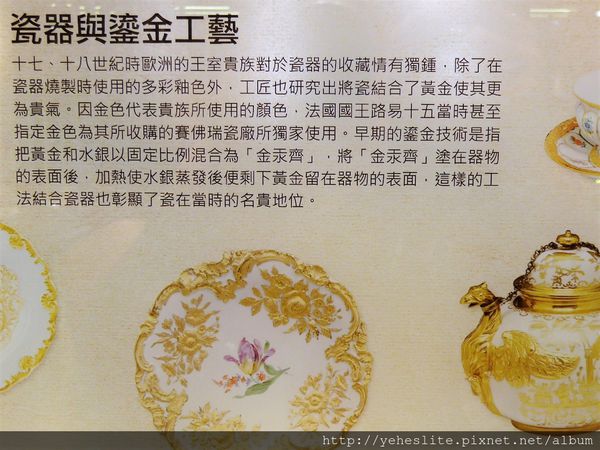 瓷器與鎏金工藝
十七、十八世紀時歐洲的王室貴族對於瓷器的收藏情有獨鍾，除了在
瓷器燒製時使用的多彩釉色外，工匠也研究出將瓷結合了黃金使其更
為貴氣。因金色代表貴族所使用的顏色，法國國王路易十五當時甚至
指定金色為其所收購的賽佛瑞瓷廠所獨家使用。早期的鎏金技術是指
把黃金和水銀以固定比例混合為「金汞齊」，將「金汞齊」塗在器物
的表面後，加熱使水銀蒸發後便剩下黃金留在器物的表面，這樣的工
法結合瓷器也彰顯了瓷在當時的名貴地位。
http://yeheslite.pixnet.net/album